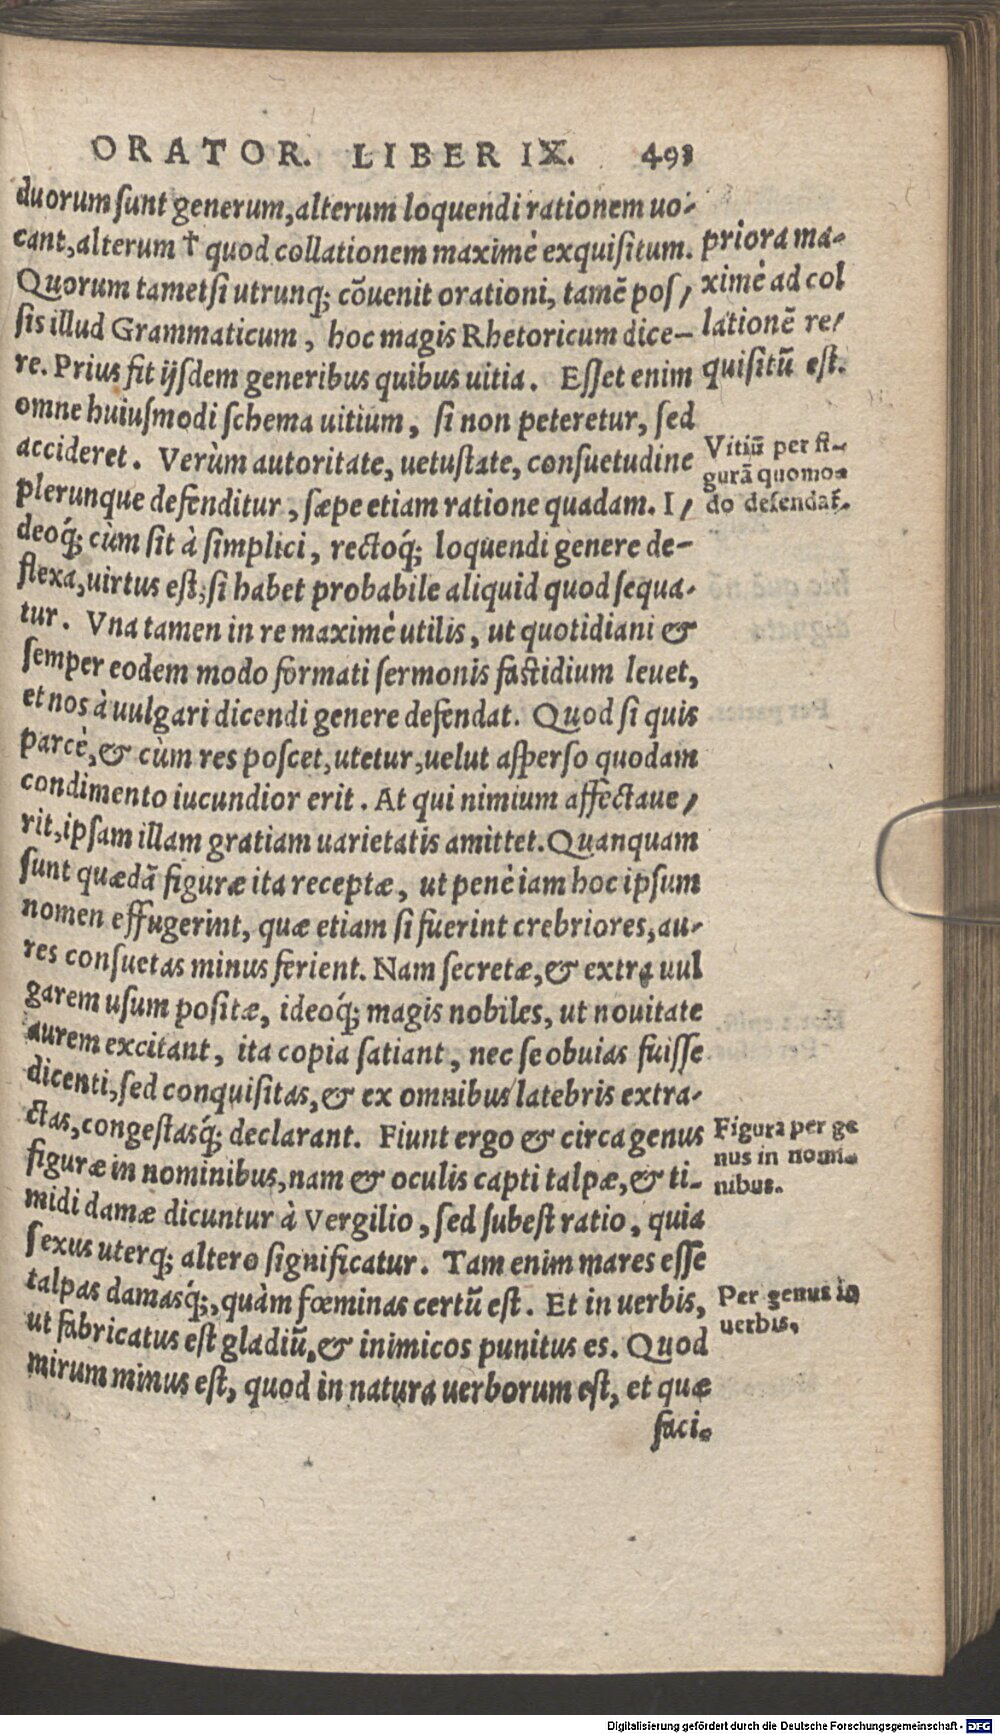 ORATOR. LIBER IX. 491
duorum sunt generum, alterum loquendi rationem uo-
cant, alterum † quod collationem maximè exquisitum.
Quorum tametsi utrunq; cõuenit orationi, tamẽ pos/
sis illud Grammaticum, hoc magis Rhetoricum dice-
re. Prius fit ijsdem generibus quibus uitia. Esset enim
omne huiusmodi schema uitium, si non peteretur, sed
accideret. Verùm autoritate, uetustate, consuetudine
plerunque defenditur, sæpe etiam ratione quadam. I/
deoq́; cùm sit à simplici, rectoq́; loquendi genere de-
flexa, uirtus est, si habet probabile aliquid quod sequa-
tur. Vna tamen in re maximè utilis, ut quotidiani &
semper eodem modo formati sermonis fastidium leuet,
et nos à uulgari dicendi genere defendat. Quod si quis
parcè, & cùm res poscet, utetur, uelut asperso quodam
condimento iucundior erit. At qui nimium affectaue/
rit, ipsam illam gratiam uarietatis amittet. Quanquam
sunt quædã figuræ ita receptæ, ut penè iam hoc ipsum
nomen effugerint, quæ etiam si fuerint crebriores, au-
res consuetas minus ferient. Nam secretæ, & extra uul
garem usum positæ, ideoq́; magis nobiles, ut nouitate
aurem excitant, ita copia satiant, nec se obuias fuisse
dicenti, sed conquisitas, & ex omnibus latebris extra-
ctas, congestasq́; declarant. Fiunt ergo & circa genus
figuræ in nominibus, nam & oculis capti talpæ, & ti-
midi damæ dicuntur à Vergilio, sed subest ratio, quia
sexus uterq; altero significatur. Tam enim mares esse
talpas damasq́;, quàm fœminas certũ est. Et in uerbis,
ut fabricatus est gladiũ, & inimicos punitus es. Quod
mirum minus est, quod in natura uerborum est, et quæ
faci-
priora ma-
ximè ad col
lationẽ re/
quisitũ est.
Vitiũ per fi-
gurã quomo-
do defendat̃.
Figura per ge
nus in nomi-
nibus.
Per genus in
uerbis.
Digitalisierung gefördert durch die Deutsche Forschungsgemeinschaft - DFG